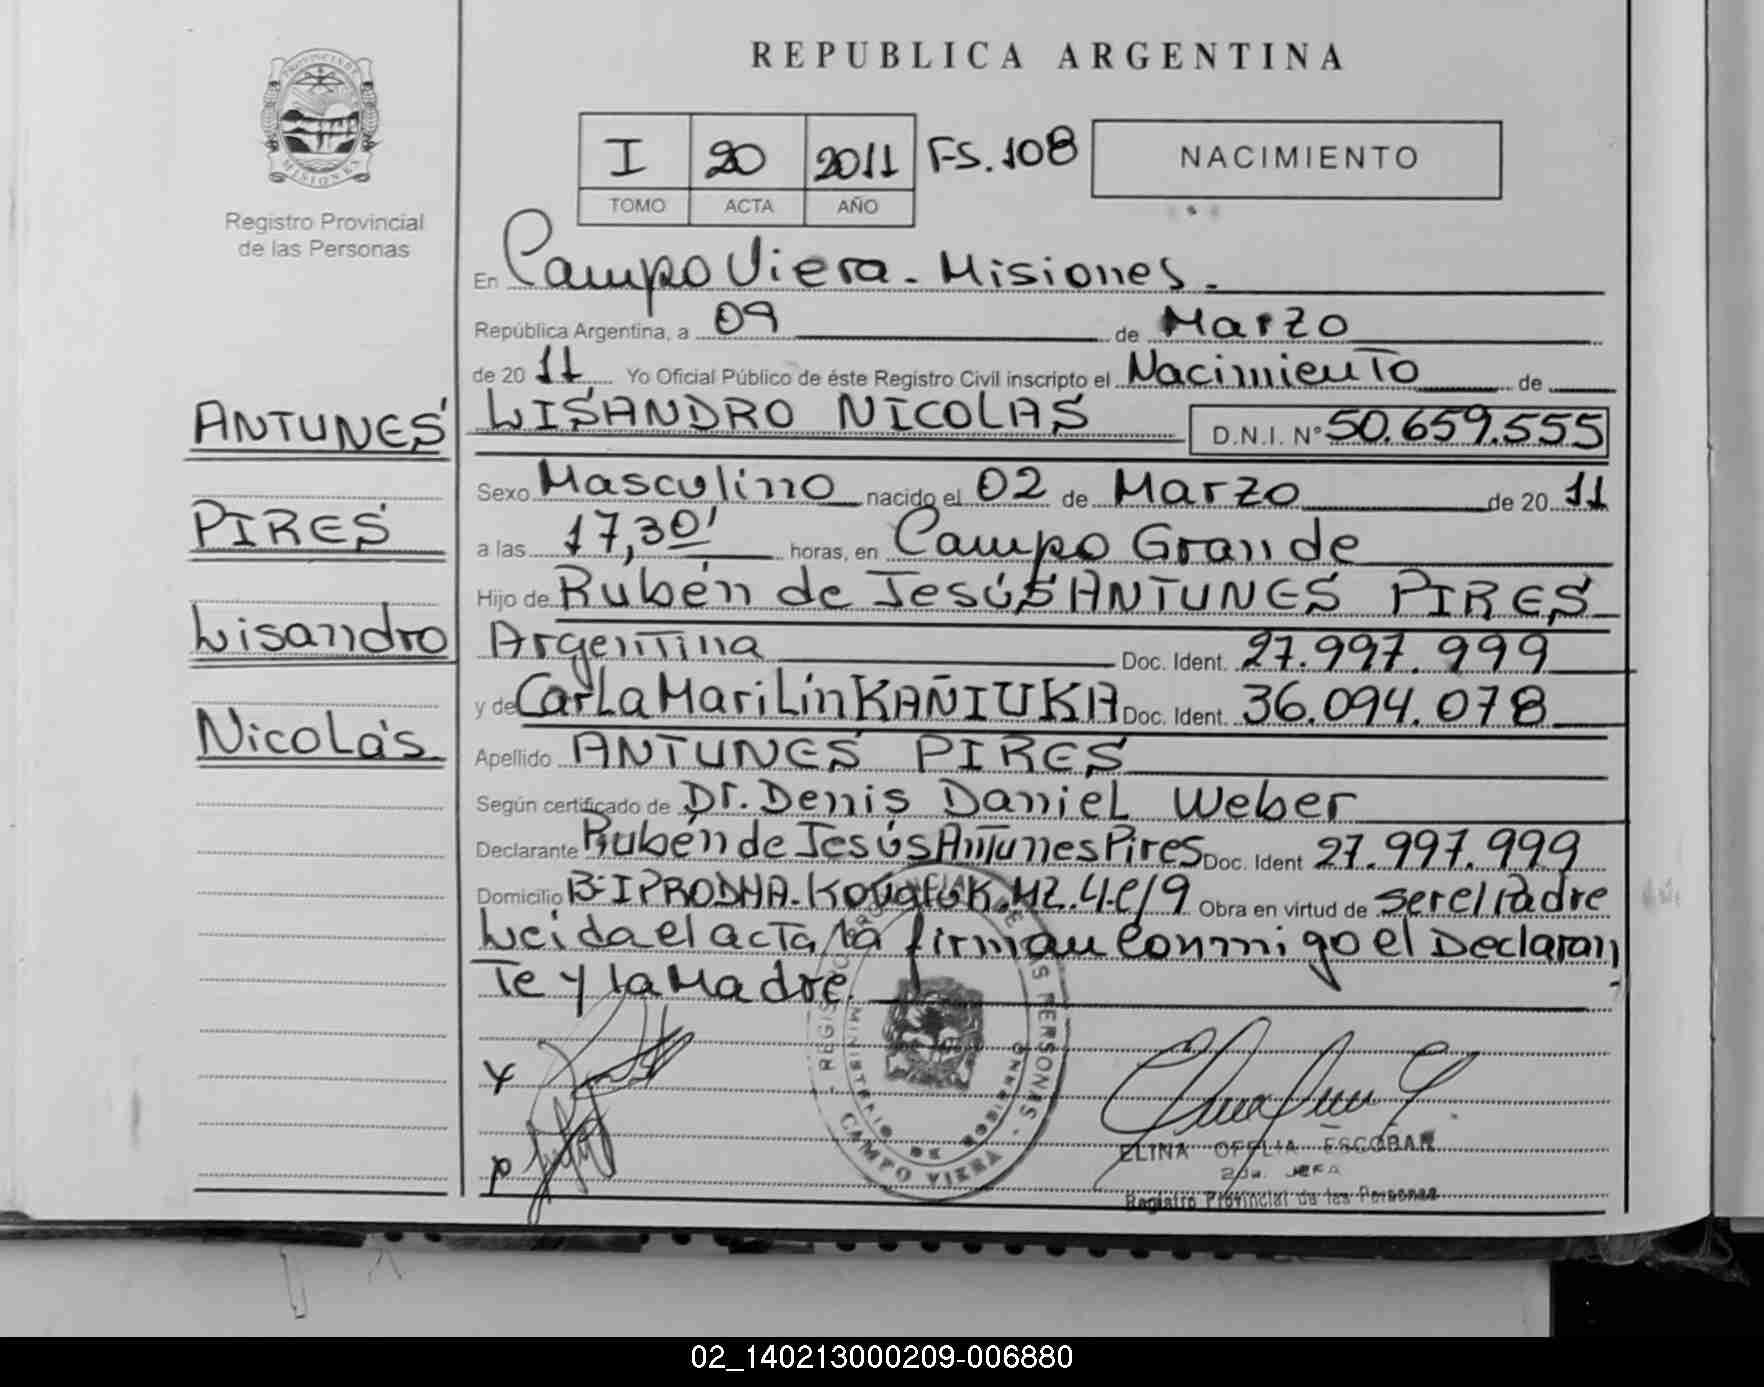 REPUBLICA ARGENTINA
PROVINCIA DE MISIONES
Registro Provincial
de las Personas
I 20 2011 FS.108
TOMO ACTA AÑO
NACIMIENTO
En Campo Viera - Misiones.
República Argentina, a 09 de Marzo
de 20 11 Yo Oficial Público de éste Registro Civil inscripto el Nacimiento de
LISANDRO NICOLAS D.N.I. N° 50.659.555
Sexo Masculino nacido el 02 de Marzo de 20 11
a las 17,30' horas, en Campo Grande
Hijo de Rubén de Jesús ANTUNES PIRES
Argentina Doc. Ident. 27.997.999
y de Carla Marilin KAÑIUKA Doc. Ident. 36.094.078
Apellido ANTUNES PIRES
Según certificado de Dr. Denis Daniel Weber
Declarante Rubén de Jesús Antunes Pires Doc. Ident 27.997.999
Domicilio B° IPRODHA. Kovaluk. MZ. 4-C/9 Obra en virtud de ser el Padre
Leida el acta, la firman conmigo el Declaran
te y la Madre.
ANTUNES
PIRES
Lisandro
Nicolás
REGISTRO PROVINCIAL DE LAS PERSONAS
MINISTERIO DE GOBIERNO
CAMPO VIERA
ELINA OFELIA ESCOBAR
2da. JEFA
Registro Provincial de las Personas
02_140213000209-006880